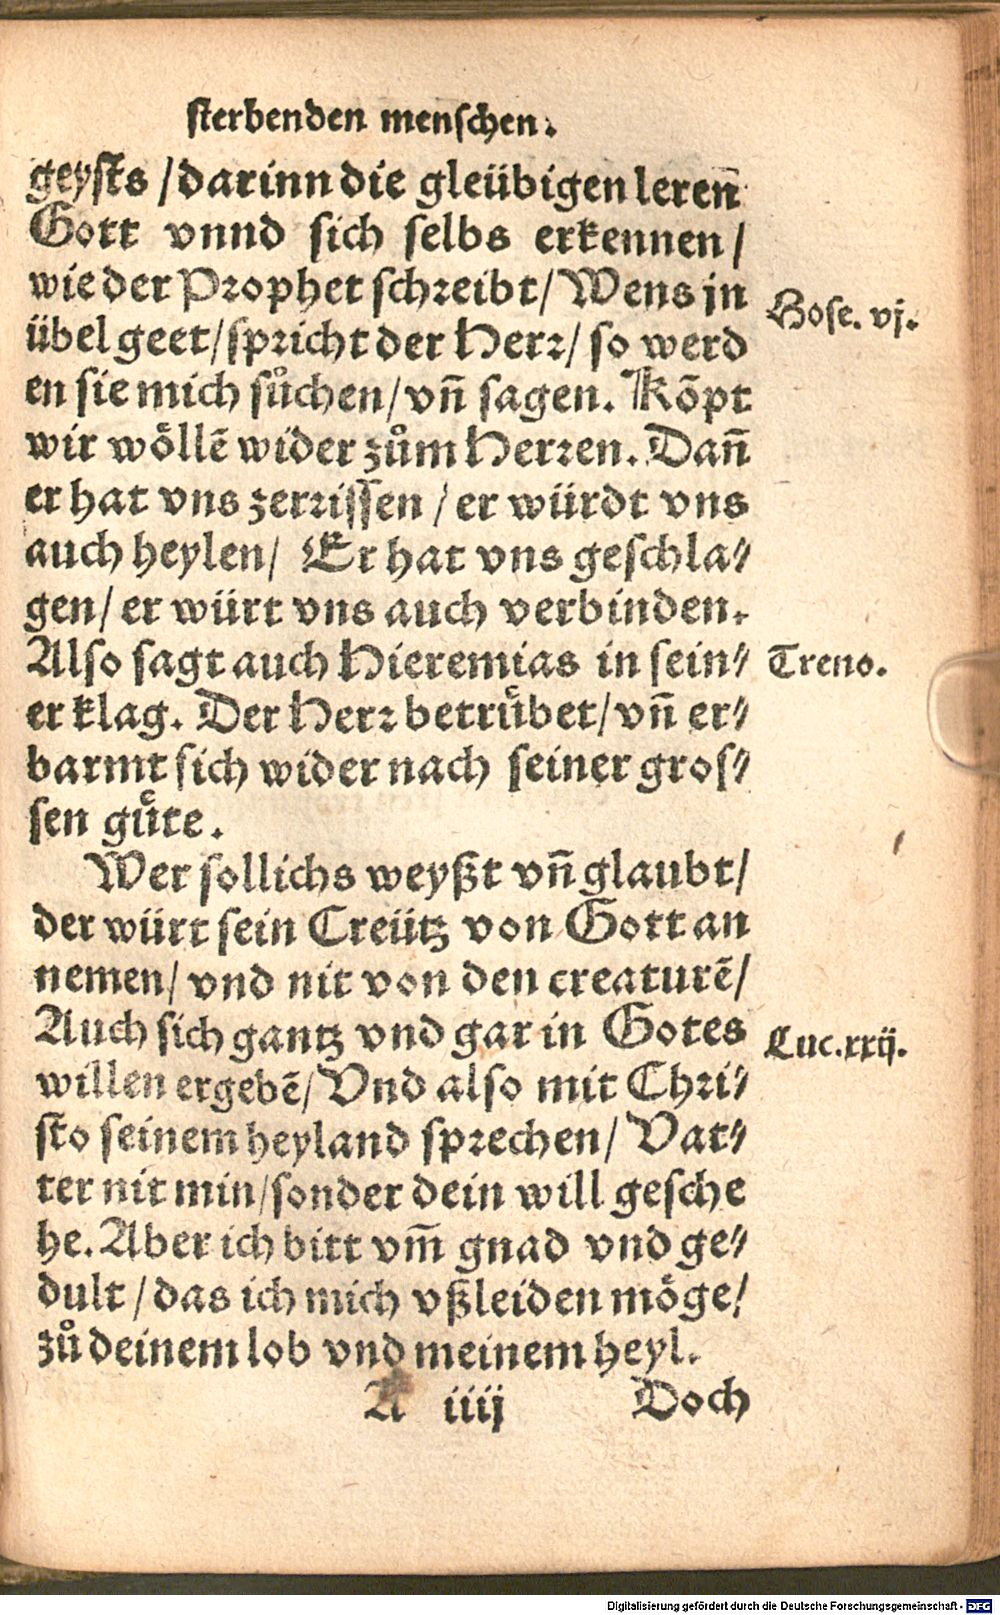 sterbenden menschen.
geysts / darinn die gleübigen leren̄
Gott vnnd sich selbs erkennen /
wie der Prophet schreibt / Wens jn
übel geet / spricht der Herr / so werd
en sie mich sůchen / vn̄ sagen. Kōpt
wir wöllē wider zům Herren. Dan̄
er hat vns zerrissen / er würdt vns
auch heylen / Er hat vns geschla⸗
gen / er würt vns auch verbinden.
Also sagt auch Hieremias in sein⸗
er klag. Der Herr betrübet / vn̄ er⸗
barmt sich wider nach seiner gros⸗
sen güte.
Wer sollichs weyßt vn̄ glaubt /
der würt sein Creütz von Gott an
nemen / vnd nit von den creaturē /
Auch sich gantz vnd gar in Gotes
willen ergebē / Vnd also mit Chri⸗
sto seinem heyland sprechen / Vat⸗
ter nit min / sonder dein will gesche
he. Aber ich bitt vm̄ gnad vnd ge⸗
dult / das ich mich vßleiden möge /
zů deinem lob vnd meinem heyl.
A iiij Doch
Hose. vj.
Treno.
Luc. xxij.
Digitalisierung gefördert durch die Deutsche Forschungsgemeinschaft - DFG